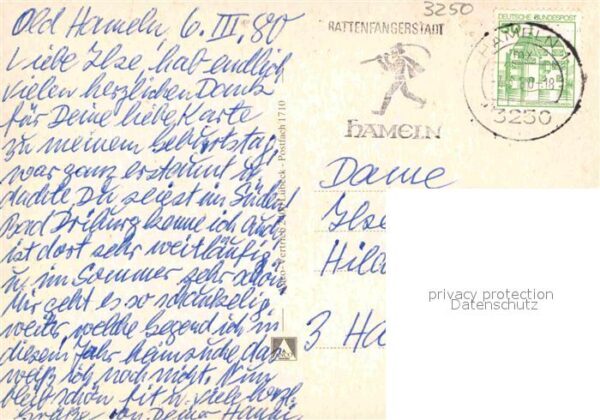 Old Hameln, 6. III. 80
Liebe Ilse, hab endlich
vielen herzlichen Dank
für Deine liebe Karte
zu meinem Geburtstag,
war ganz erstaunt u.
dachte Du seiest im Süden!
Bad Driburg kenne ich auch
ist dort sehr weitläufig
u. im Sommer sehr schön.
Mir geht es so schaukelig
weiter, welche Gegend ich in
diesem Jahr heimsuche, das
weiß ich noch nicht. Nun
bleib schön fit u. viele herzl.
Grüße von Deiner
Lübeck - Postfach 1710
3250
RATTENFÄNGERSTADT
HAMELN
DEUTSCHE BUNDESPOST
HAMELN 1
3250
Dame
Ilse
Hild
3 Ha
privacy protection
Datenschutz